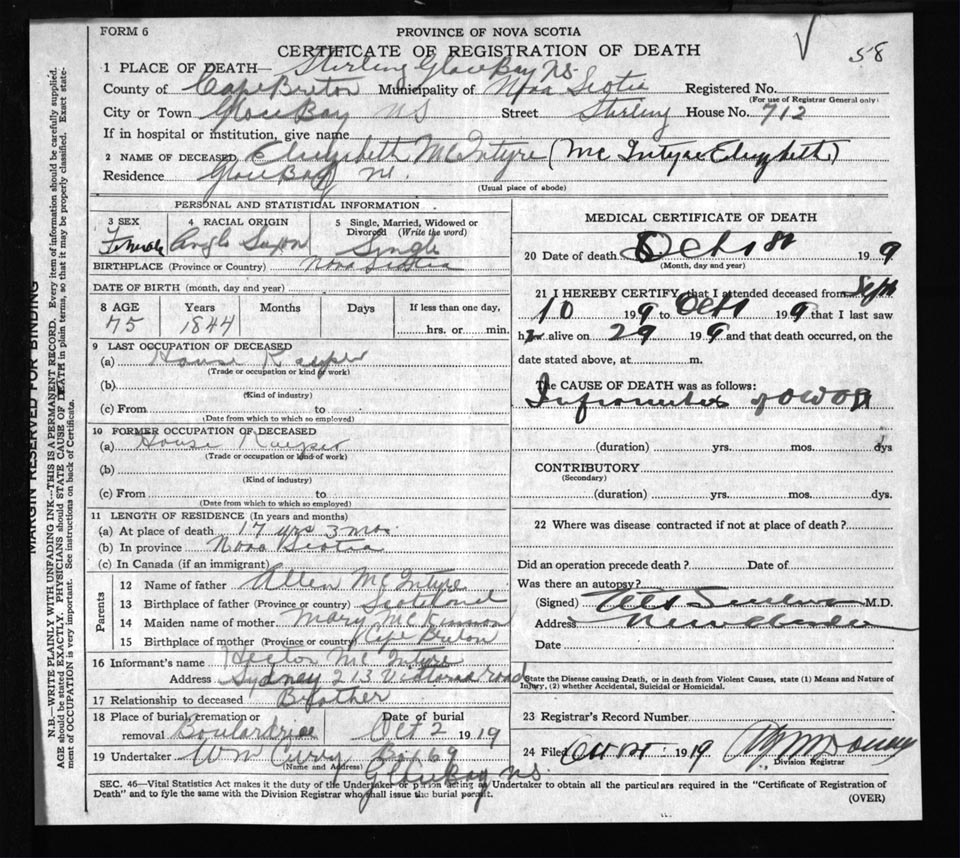 FORM 6
PROVINCE OF NOVA SCOTIA
58
CERTIFICATE OF REGISTRATION OF DEATH
1 PLACE OF DEATH— Stirling Glace Bay NS.
County of Cape Breton Municipality of Nova Scotia Registered No.
(For use of Registrar General only)
City or Town Glace Bay NS Street Stirling House No. 712
If in hospital or institution, give name
2 NAME OF DECEASED Elizabeth McIntyre (McIntyre Elizabeth)
Residence Glace Bay N.
(Usual place of abode)
PERSONAL AND STATISTICAL INFORMATION
3 SEX
4 RACIAL ORIGIN
5 Single, Married, Widowed or Divorced (Write the word)
Female Anglo Saxon Single
BIRTHPLACE (Province or Country) Nova Scotia
DATE OF BIRTH (month, day and year)
8 AGE Years Months Days If less than one day,
75 1844 hrs. or min.
9 LAST OCCUPATION OF DECEASED
(a) House Keeper
(Trade or occupation or kind of work)
(b)
(Kind of industry)
(c) From to
(Date from which to which so employed)
10 FORMER OCCUPATION OF DECEASED
(a) House Keeper
(Trade or occupation or kind of work)
(b)
(Kind of industry)
(c) From to
(Date from which to which so employed)
11 LENGTH OF RESIDENCE (In years and months)
(a) At place of death 17 yrs 3 mos.
(b) In province Nova Scotia
(c) In Canada (if an immigrant)
Parents
12 Name of father Allen McIntyre
13 Birthplace of father (Province or country) Scotland
14 Maiden name of mother Mary McKinnon
15 Birthplace of mother (Province or country) Cape Breton
16 Informant's name Hector McIntyre
Address Sydney 213 Victoria road
17 Relationship to deceased Brother
18 Place of burial, cremation or removal Date of burial
Boulardrie Oct 2 1919
19 Undertaker Wm Curry Box 69
(Name and Address)
Glace Bay NS.
MEDICAL CERTIFICATE OF DEATH
20 Date of death Oct 1st 19 9
(Month, day and year)
21 I HEREBY CERTIFY that I attended deceased from Sept
10 19 9 to Oct 1 19 9 that I last saw
her alive on 29 19 9 and that death occurred, on
date stated above, at m.
The CAUSE OF DEATH was as follows:
(duration) yrs. mos. dys
CONTRIBUTORY
(Secondary)
(duration) yrs. mos. dys.
22 Where was disease contracted if not at place of death?
Did an operation precede death? Date of
Was there an autopsy?
(Signed) M.D.
Address
Date
State the Disease causing Death, or in death from Violent Causes, state (1) Means and Nature of
Injury, (2) whether Accidental, Suicidal or Homicidal.
23 Registrar's Record Number
24 Filed 1919
Division Registrar
SEC. 46—Vital Statistics Act makes it the duty of the Undertaker or person acting as Undertaker to obtain all the particulars required in the "Certificate of Registration of
Death" and to fyle the same with the Division Registrar who shall issue the burial permit.
(OVER)
MARGIN RESERVED FOR BINDING
N.B.—WRITE PLAINLY WITH UNFADING INK—THIS IS A PERMANENT RECORD. Every item of information should be carefully supplied.
AGE should be stated EXACTLY. PHYSICIANS should STATE CAUSE OF DEATH in plain terms, so that it may be properly classified. Exact state-
ment of OCCUPATION is very important. See instructions on back of Certificate.